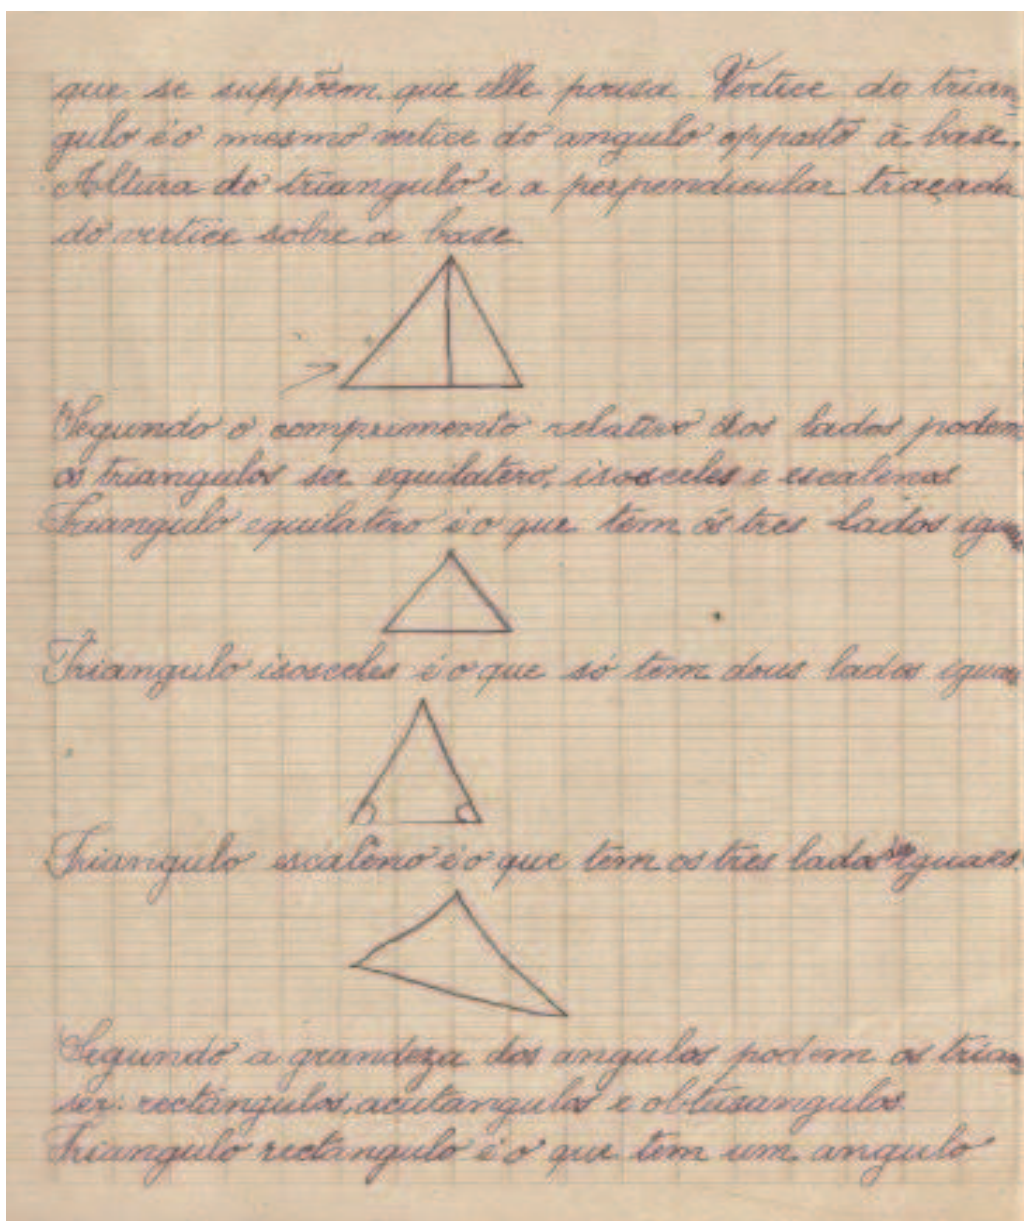 que se suppõem que elle pousa. Vertice do trian
gulo é o mesmo vertice do angulo opposto á base.
Altura do triangulo e a perpendicular traçada
do vertice sobre a base.
Segundo o comprimento relativo dos lados podem
os triangulos ser equilatero, isosceles e escalenos
Triangulo equilatero é o que tem os tres lados
Triangulo isosceles é o que só tem dous lados
Triangulo escaleno é o que tem os tres lados iguaes.
Segundo a grandeza dos angulos podem os
ser rectangulos, acutangulos e obtusangulos
Triangulo rectangulo é o que tem um angulo